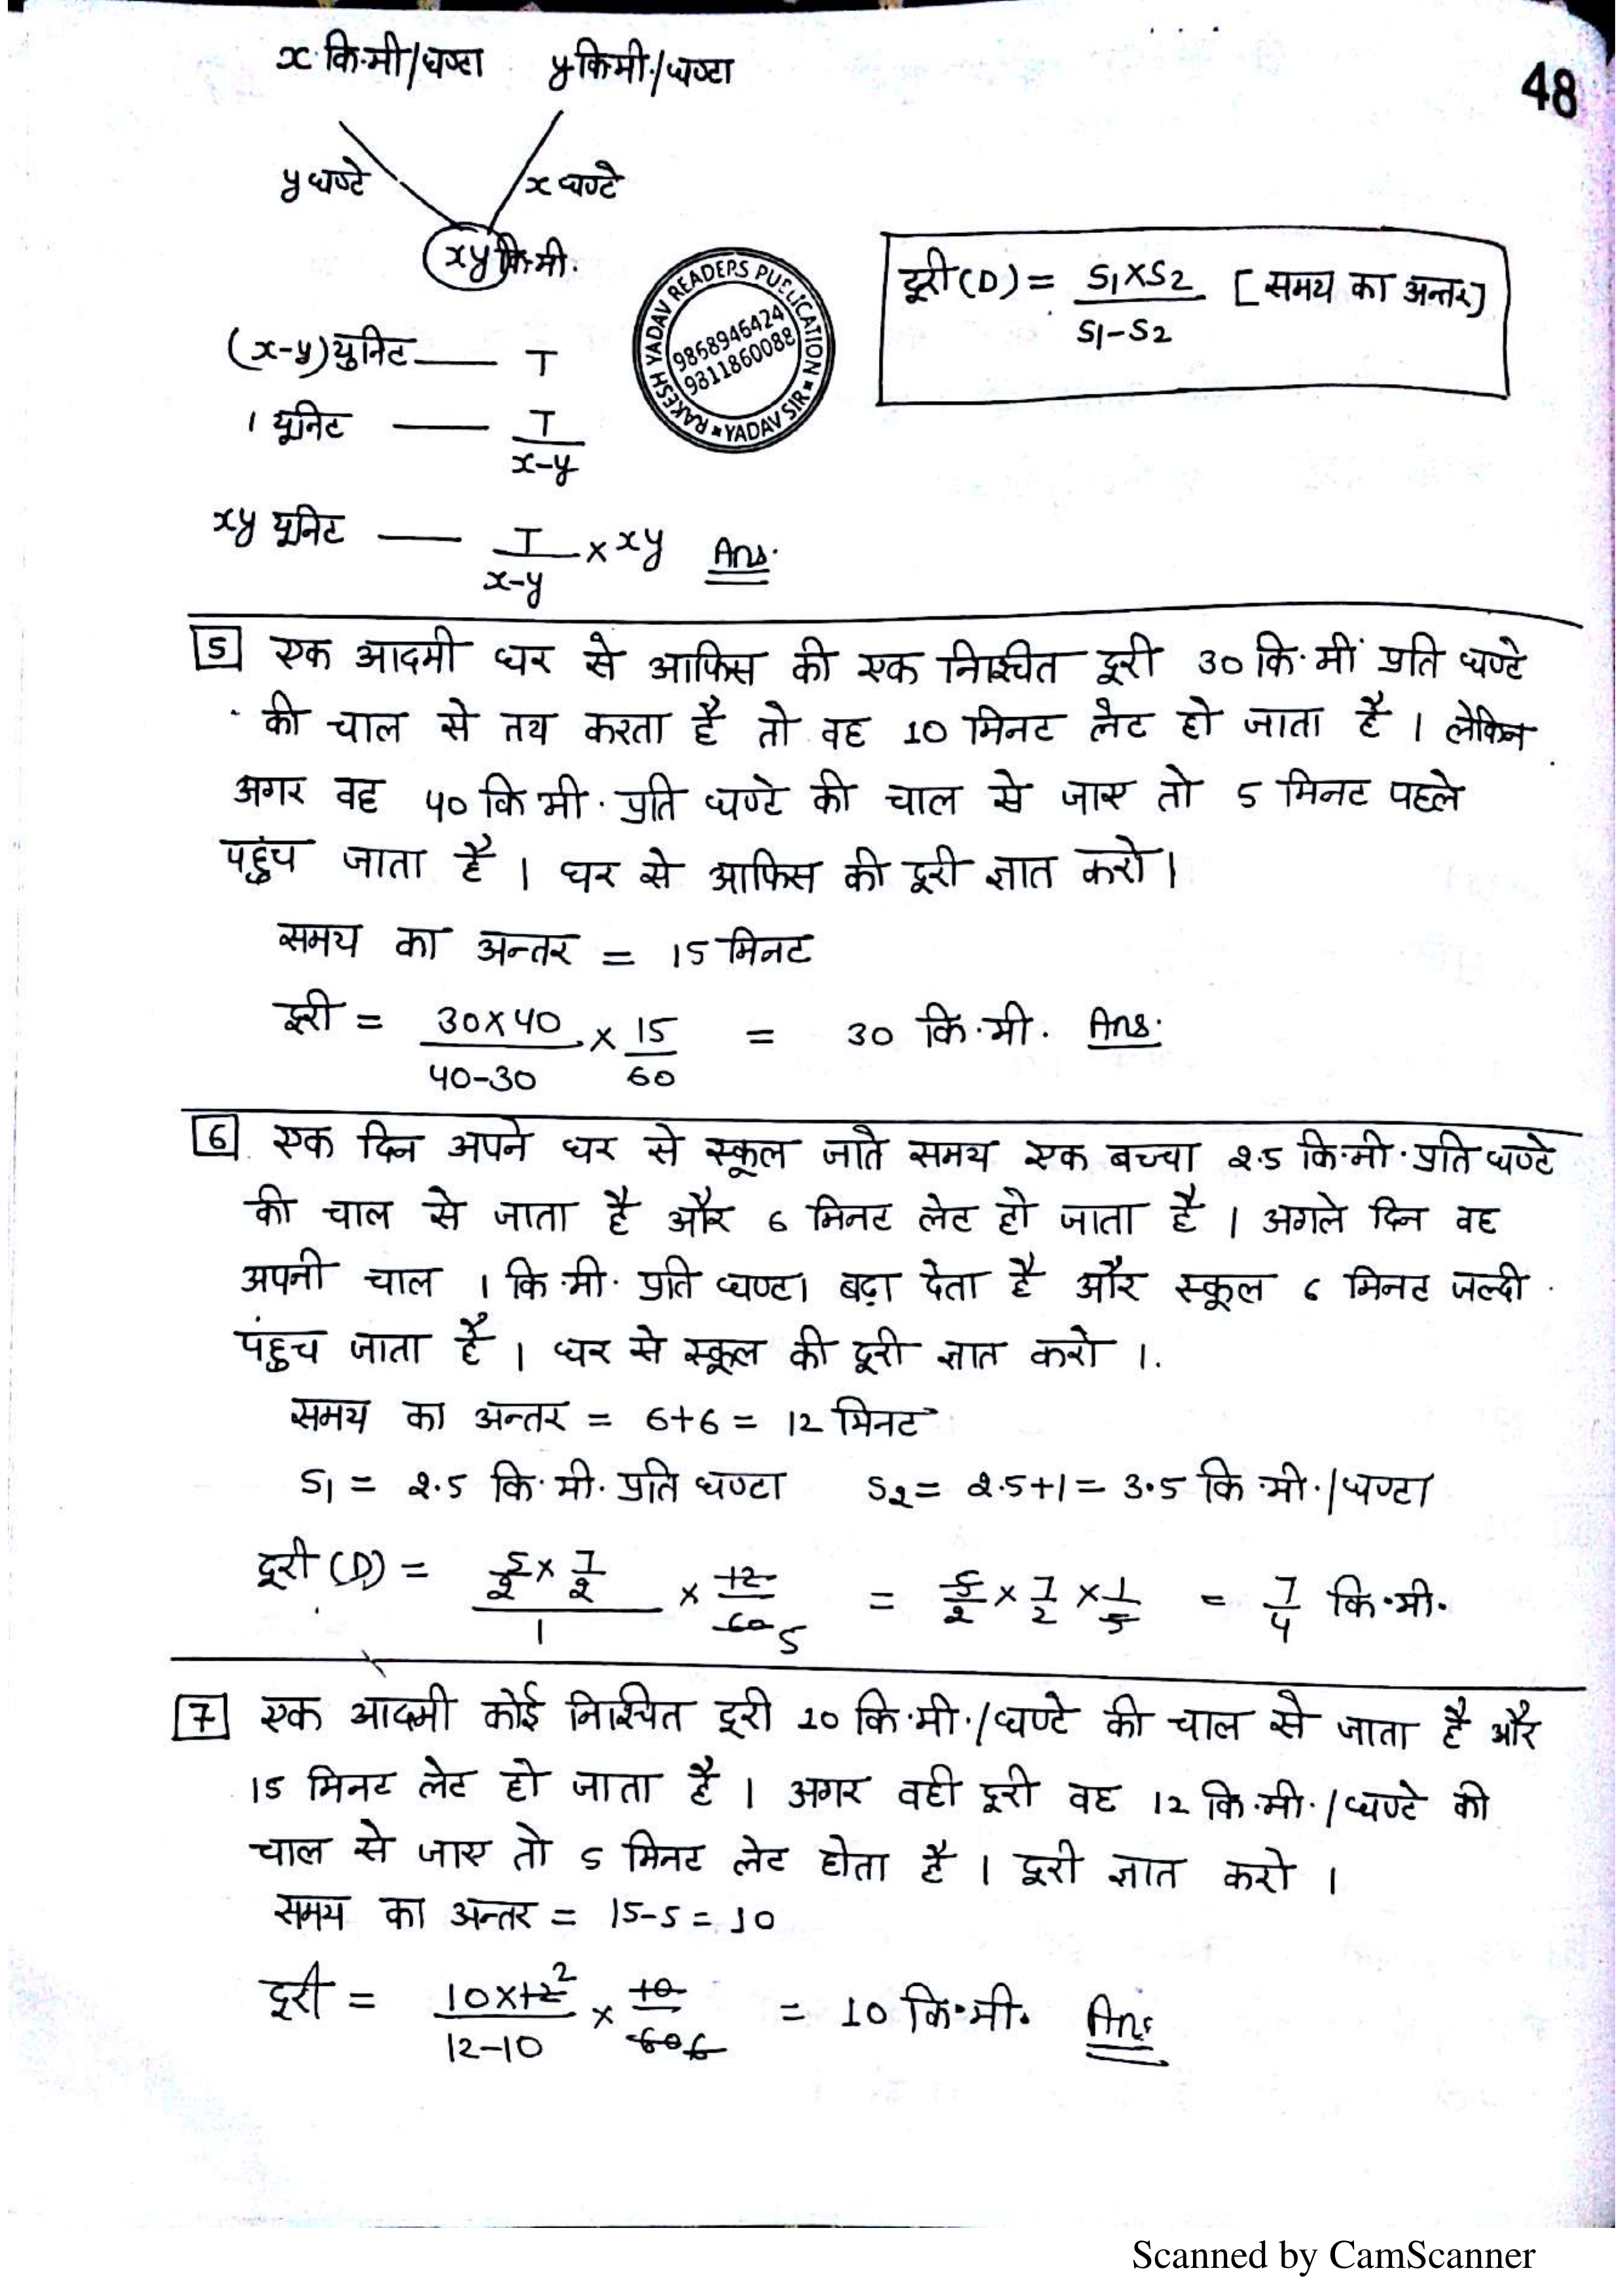 x कि.मी/घण्टा y कि.मी./घण्टा
48
y घण्टे x घण्टे
xy कि.मी.
RAKESH YADAV READERS PUBLICATION
YADAV SIR
9868946424
9811860088
दूरी (D) = S1×S2 / S1-S2 [समय का अन्तर]
(x-y) युनिट — T
1 यूनिट — T / x-y
xy यूनिट — T / x-y × xy Ans.
5 एक आदमी घर से आफिस की एक निश्चित दूरी 30 कि.मी. प्रति घण्टे
की चाल से तय करता है तो वह 10 मिनट लेट हो जाता है । लेकिन
अगर वह 40 कि मी. प्रति घण्टे की चाल से जाए तो 5 मिनट पहले
पहुंच जाता है । घर से आफिस की दूरी ज्ञात करो ।
समय का अन्तर = 15 मिनट
दूरी = 30×40 / 40-30 × 15 / 60 = 30 कि.मी. Ans.
6 एक दिन अपने घर से स्कूल जाते समय एक बच्चा 2.5 कि.मी. प्रति घण्टे
की चाल से जाता है और 6 मिनट लेट हो जाता है । अगले दिन वह
अपनी चाल 1 कि.मी. प्रति घण्टा बढ़ा देता है और स्कूल 6 मिनट जल्दी
पंहुच जाता है । घर से स्कूल की दूरी ज्ञात करो ।
समय का अन्तर = 6+6 = 12 मिनट
S1 = 2.5 कि.मी. प्रति घण्टा S2 = 2.5+1 = 3.5 कि.मी./घण्टा
दूरी (D) = 5/2 × 7/2 / 1 × 12 / 60 5 = 5/2 × 7/2 × 1/5 = 7/4 कि.मी.
7 एक आदमी कोई निश्चित दूरी 10 कि.मी./घण्टे की चाल से जाता है और
15 मिनट लेट हो जाता है । अगर वही दूरी वह 12 कि.मी./घण्टे की
चाल से जाए तो 5 मिनट लेट होता है । दूरी ज्ञात करो ।
समय का अन्तर = 15-5 = 10
दूरी = 10×12 2 / 12-10 × 10 / 60 6 = 10 कि.मी. Ans
Scanned by CamScanner